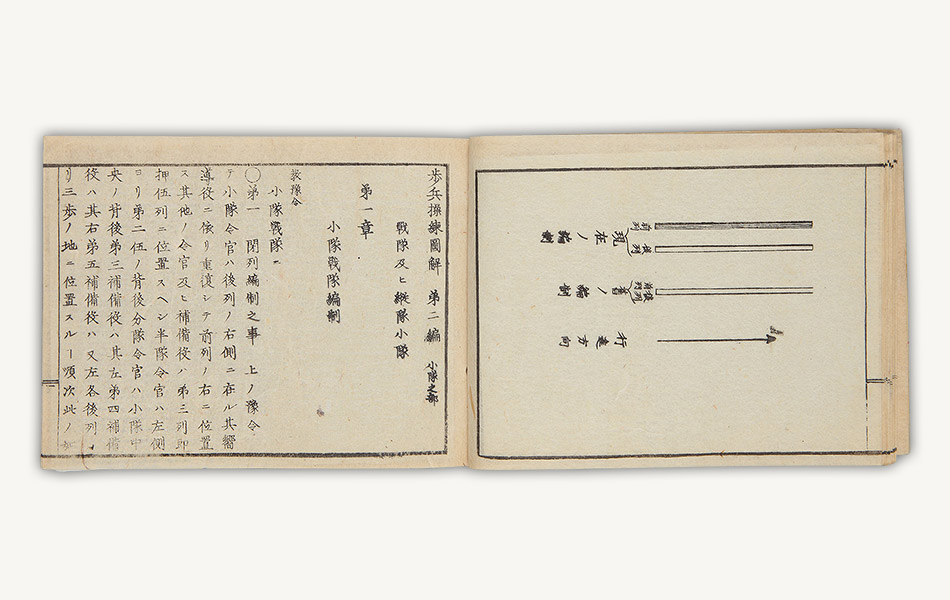 前列
現在ノ編制
後列
舊ノ編制
行進方向
歩兵操練圖解 第二編 小隊之部
戰隊及ヒ縱隊小隊
第一章
小隊戰隊編制
豫令
小隊戰隊ニ
〇第一 閉列編制之事 上ノ豫令
テ小隊令官ハ後列ノ右側ニ在ル其嚮
導役ニ依リ重復シテ前列ノ右ニ位置
ス其他ノ令官及ヒ補備役ハ第三列即
押伍列ニ位置スヘシ半隊令官ハ左側
ヨリ第二伍ノ背後分隊令官ハ小隊中
央ノ背後第三補備役ハ其左第四補備
役ハ其右第五補備役ハ又左各後列ヨ
リ三歩ノ地ニ位置スルー順次此ノ如